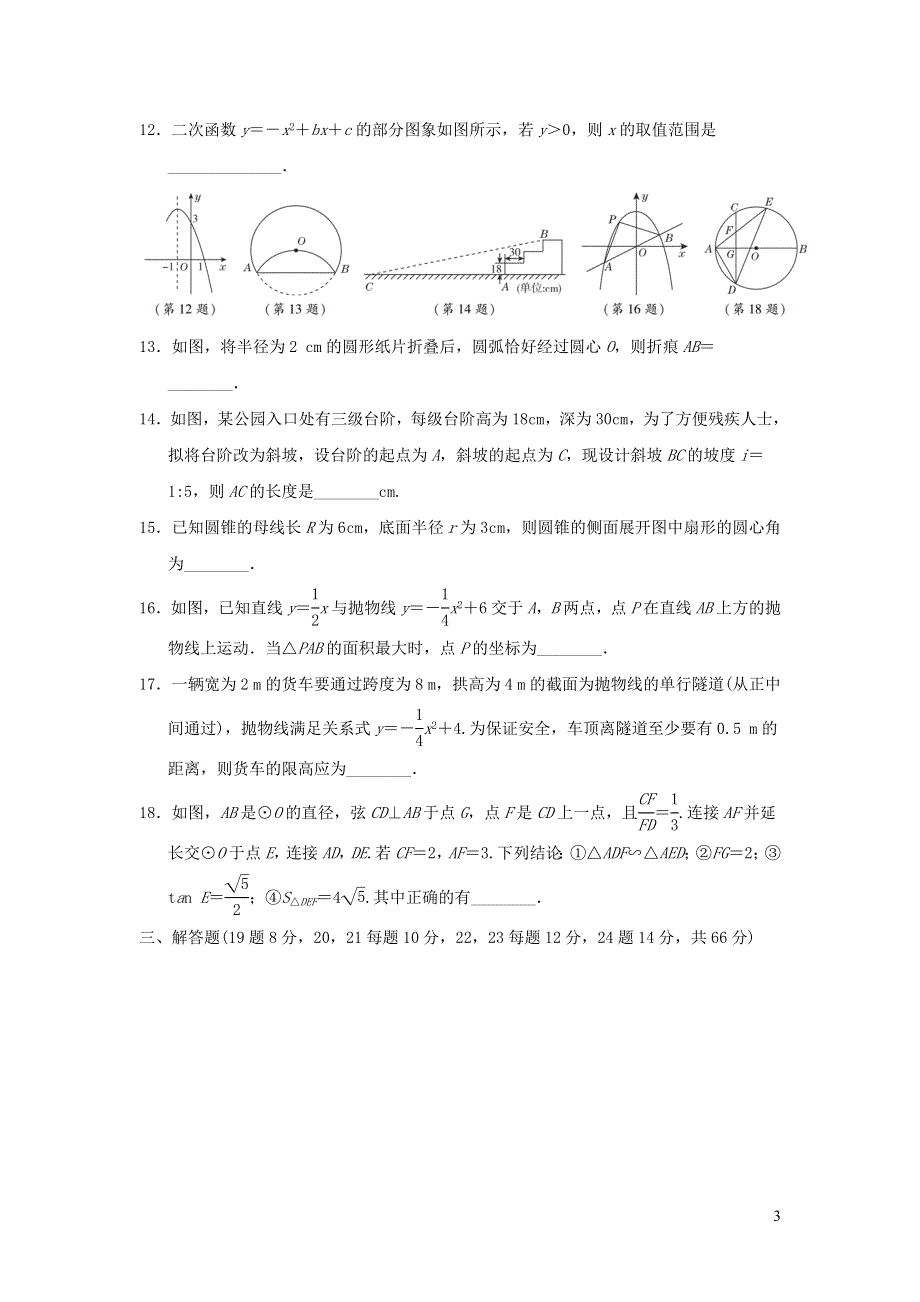 12．二次函数 y＝－x²＋bx＋c 的部分图象如图所示，若 y＞0，则 x 的取值范围是
______________．
y 3 －1 O 1 x
O A B
B 30 18 C A (单位:cm)
y P B O x A
C E F A G O B D
(第 12 题) (第 13 题) (第 14 题) (第 16 题) (第 18 题)
13．如图，将半径为 2 cm 的圆形纸片折叠后，圆弧恰好经过圆心 O，则折痕 AB＝
________．
14．如图，某公园入口处有三级台阶，每级台阶高为 18cm，深为 30cm，为了方便残疾人士，
拟将台阶改为斜坡，设台阶的起点为 A，斜坡的起点为 C，现设计斜坡 BC 的坡度 i＝
1:5，则 AC 的长度是________cm.
15．已知圆锥的母线长 R 为 6cm，底面半径 r 为 3cm，则圆锥的侧面展开图中扇形的圆心角
为________．
16．如图，已知直线 y＝1/2x 与抛物线 y＝－1/4x²＋6 交于 A，B 两点，点 P 在直线 AB 上方的抛
物线上运动．当△PAB 的面积最大时，点 P 的坐标为________．
17．一辆宽为 2 m 的货车要通过跨度为 8 m，拱高为 4 m 的截面为抛物线的单行隧道(从正中
间通过)，抛物线满足关系式 y＝－1/4x²＋4.为保证安全，车顶离隧道至少要有 0.5 m 的
距离，则货车的限高应为________．
18．如图，AB 是⊙O 的直径，弦 CD⊥AB 于点 G，点 F 是 CD 上一点，且CF/FD＝1/3.连接 AF 并延
长交⊙O 于点 E，连接 AD，DE.若 CF＝2，AF＝3.下列结论：①△ADF∽△AED；②FG＝2；③
tan E＝√5/2；④S△DEF＝4√5.其中正确的有________．
三、解答题(19 题 8 分，20，21 每题 10 分，22，23 每题 12 分，24 题 14 分，共 66 分)
3